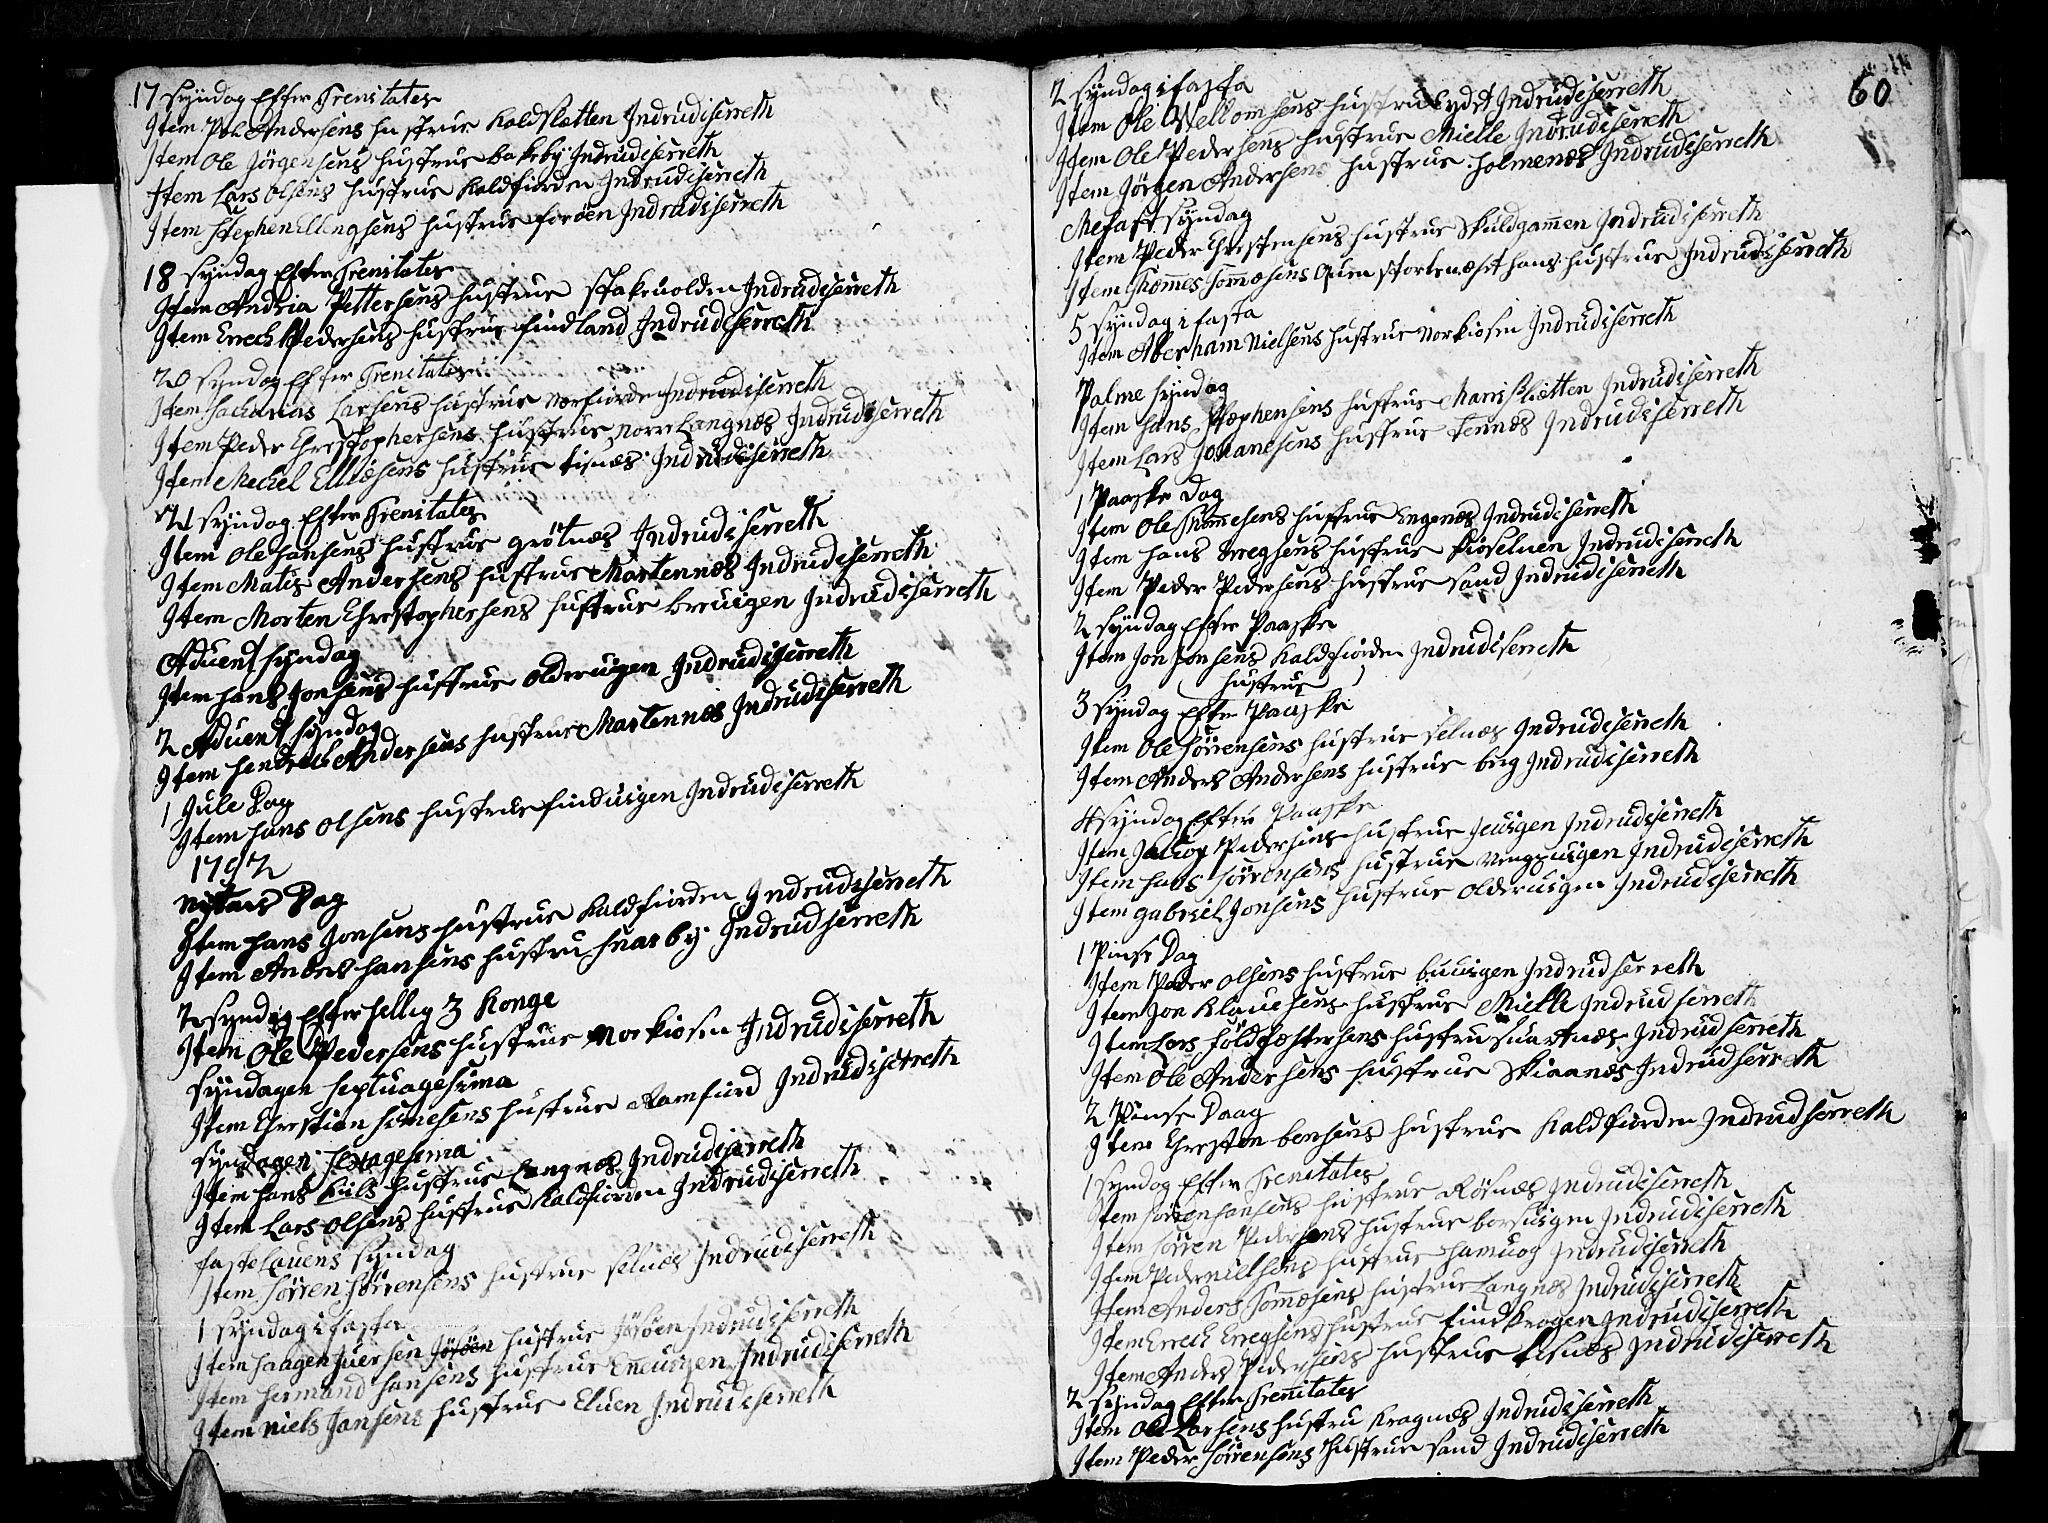 17 Syndag Efter Trenitates
Item Pole Andersens hustrue Kaldslætten Indrudiserreth
Item Ole Jörgensens hustrue bakeby Indrudiserreth
Item Lars Olsens hustrue Kaldfiorden Indrudiserreth
Item Stephen Ellengsens hustrue foröen Indrudiserreth
18 Syndag Efter Trenitates
Item Andria Pettersens hustrue Stakeuolden Indrudiserreth
Item Errech Pedersens hustrue findland Indrudiserreth
20 Syndag Efter Trenitates
Item Sacharias Larsens hustrue Norfiorden Indrudiserreth
Item Peder Chrestophersens hustrue Norre Langnæs Indrudiserreth
Item Mechel Elliæsens hustrue tisnæs Indrudiserreth
21 Syndag Efter Trenitates
Item Ole hansens hustrue grötnæs Indrudiserreth
Item Matis Andersens hustrue Mortennæs Indrudiserreth
Item Morten Chrestophersens hustrue breuigen Indrudiserreth
Aduent Syndag
Item hans Jonsens hustrue olderuigen Indrudiserreth
2 Aduent Syndag
Item hendrech Andersens hustrue Martennæs Indrudiserreth
1 Jule Dag
Item hans olsens hustrue finduigen Indrudiserreth
1792
nytaars Dag
Item hans Jonsens hustrue Kaldfiorden Indrudiserreth
Item Anders hansens hustru snarby Indrudserreth
2 Syndag Efter hellig 3 Konge
Item Ole Pedersens hustrue Norkiosen Indrudiserreth
Syndagen Septuagesima
Item Chrestian Simesens hustrue Ramfiord Indrudiserreth
Syndagen Sexagesima
Item hans Kiils hustrue Langnæs Indrudiserreth
Item Lars olsens hustrue Kaldfiorden Indrudiserreth
faste Lauens Syndag
Item Sörren Sörrensens hustrue selnæs Indrudiserreth
1 Syndag i fasta
Item haagen Iuersen Jösöen hustrue Jösöen Indrudiserreth
Item hermand hansens hustrue Eneuigen Indrudiserreth
Item niels Jansens hustrue Eluen Indrudiserreth
60
2 Syndag i fasta
Item Ole Wellomsens hustrue Indrudiserreth
Item Ole Pedersens hustrue Mielle Indrudiserreth
Item Jörgen Andersens hustrue holmenæs Indrudiserreth
Mefast Syndag
Item Peder Chrestensens hustrue Skuldgammen Indrudiserreth
Item Thommes Tommæsens Quen stortenæset hans hustrue Indrudiserreth
5 Syndag i fasta
Item Aberham Nielsens hustrue Norkiosen Indrudiserreth
Palme Syndag
Item hans Stephensens hustrue Marrislætten Indrudiserreth
Item Lars Johanesens hustrue tennæs Indrudiserreth
1 Paaske Dag
Item Ole Thommesens hustrue Engenæs Indrudiserreth
Item hans Erregsens hustrue Kiöseluen Indrudiserreth
Item Peder Pedersens hustrue sand Indrudiserreth
2 Syndag Efter Paaske
Item Jon Jonsens Kaldfiorden Indrudiserreth
hustrue
3 Syndag Efter Paaske
Item Ole Sörrensens hustrue selnæs Indrudiserreth
Item Anders Andersens hustrue berg Indrudiserreth
4 Syndag Efter Paaske
Item Jachop Pedersens hustrue Jeuigen Indrudiserreth
Item hans Sörrensens hustrue Vengsuigen Indrudiserreth
Item gabriel Jonsens hustrue olderuigen Indrudiserreth
1 Pinse Dag
Item Peder olsens hustrue buuigen Indrudserreth
Item Jon Klauesens hustrue Mielle Indrudserreth
Item Lars földfæstersens hustru suartnæs Indrudserreth
Item Ole Andersens hustrue Skiaanæs Indrudserreth
2 Pinse Daag
Item Chresten bensens hustrue Kaldfiorden Indrudserreth
1 Syndag Efter Trenitates
Item Sörren hansens hustrue Rösnæs Indrudiserreth
Item Sörren Pedersens hustrue borsuigen Indrudiserreth
Item Peder nielsens hustrue hamuog Indrudiserreth
Item Anders Tommæsens hustrue Langnæs Indrudiserreth
Item Errech Erregsens hustrue findkrogen Indrudiserreth
Item Anders Pedersens hustrue tisnæs Indrudiserreth
2 Syndag Efter Trenitates
Item Ole Larsens hustru Kragnæs Indrudiserreth
Item Peder Sörrensens hustrue sand Indrudiserreth